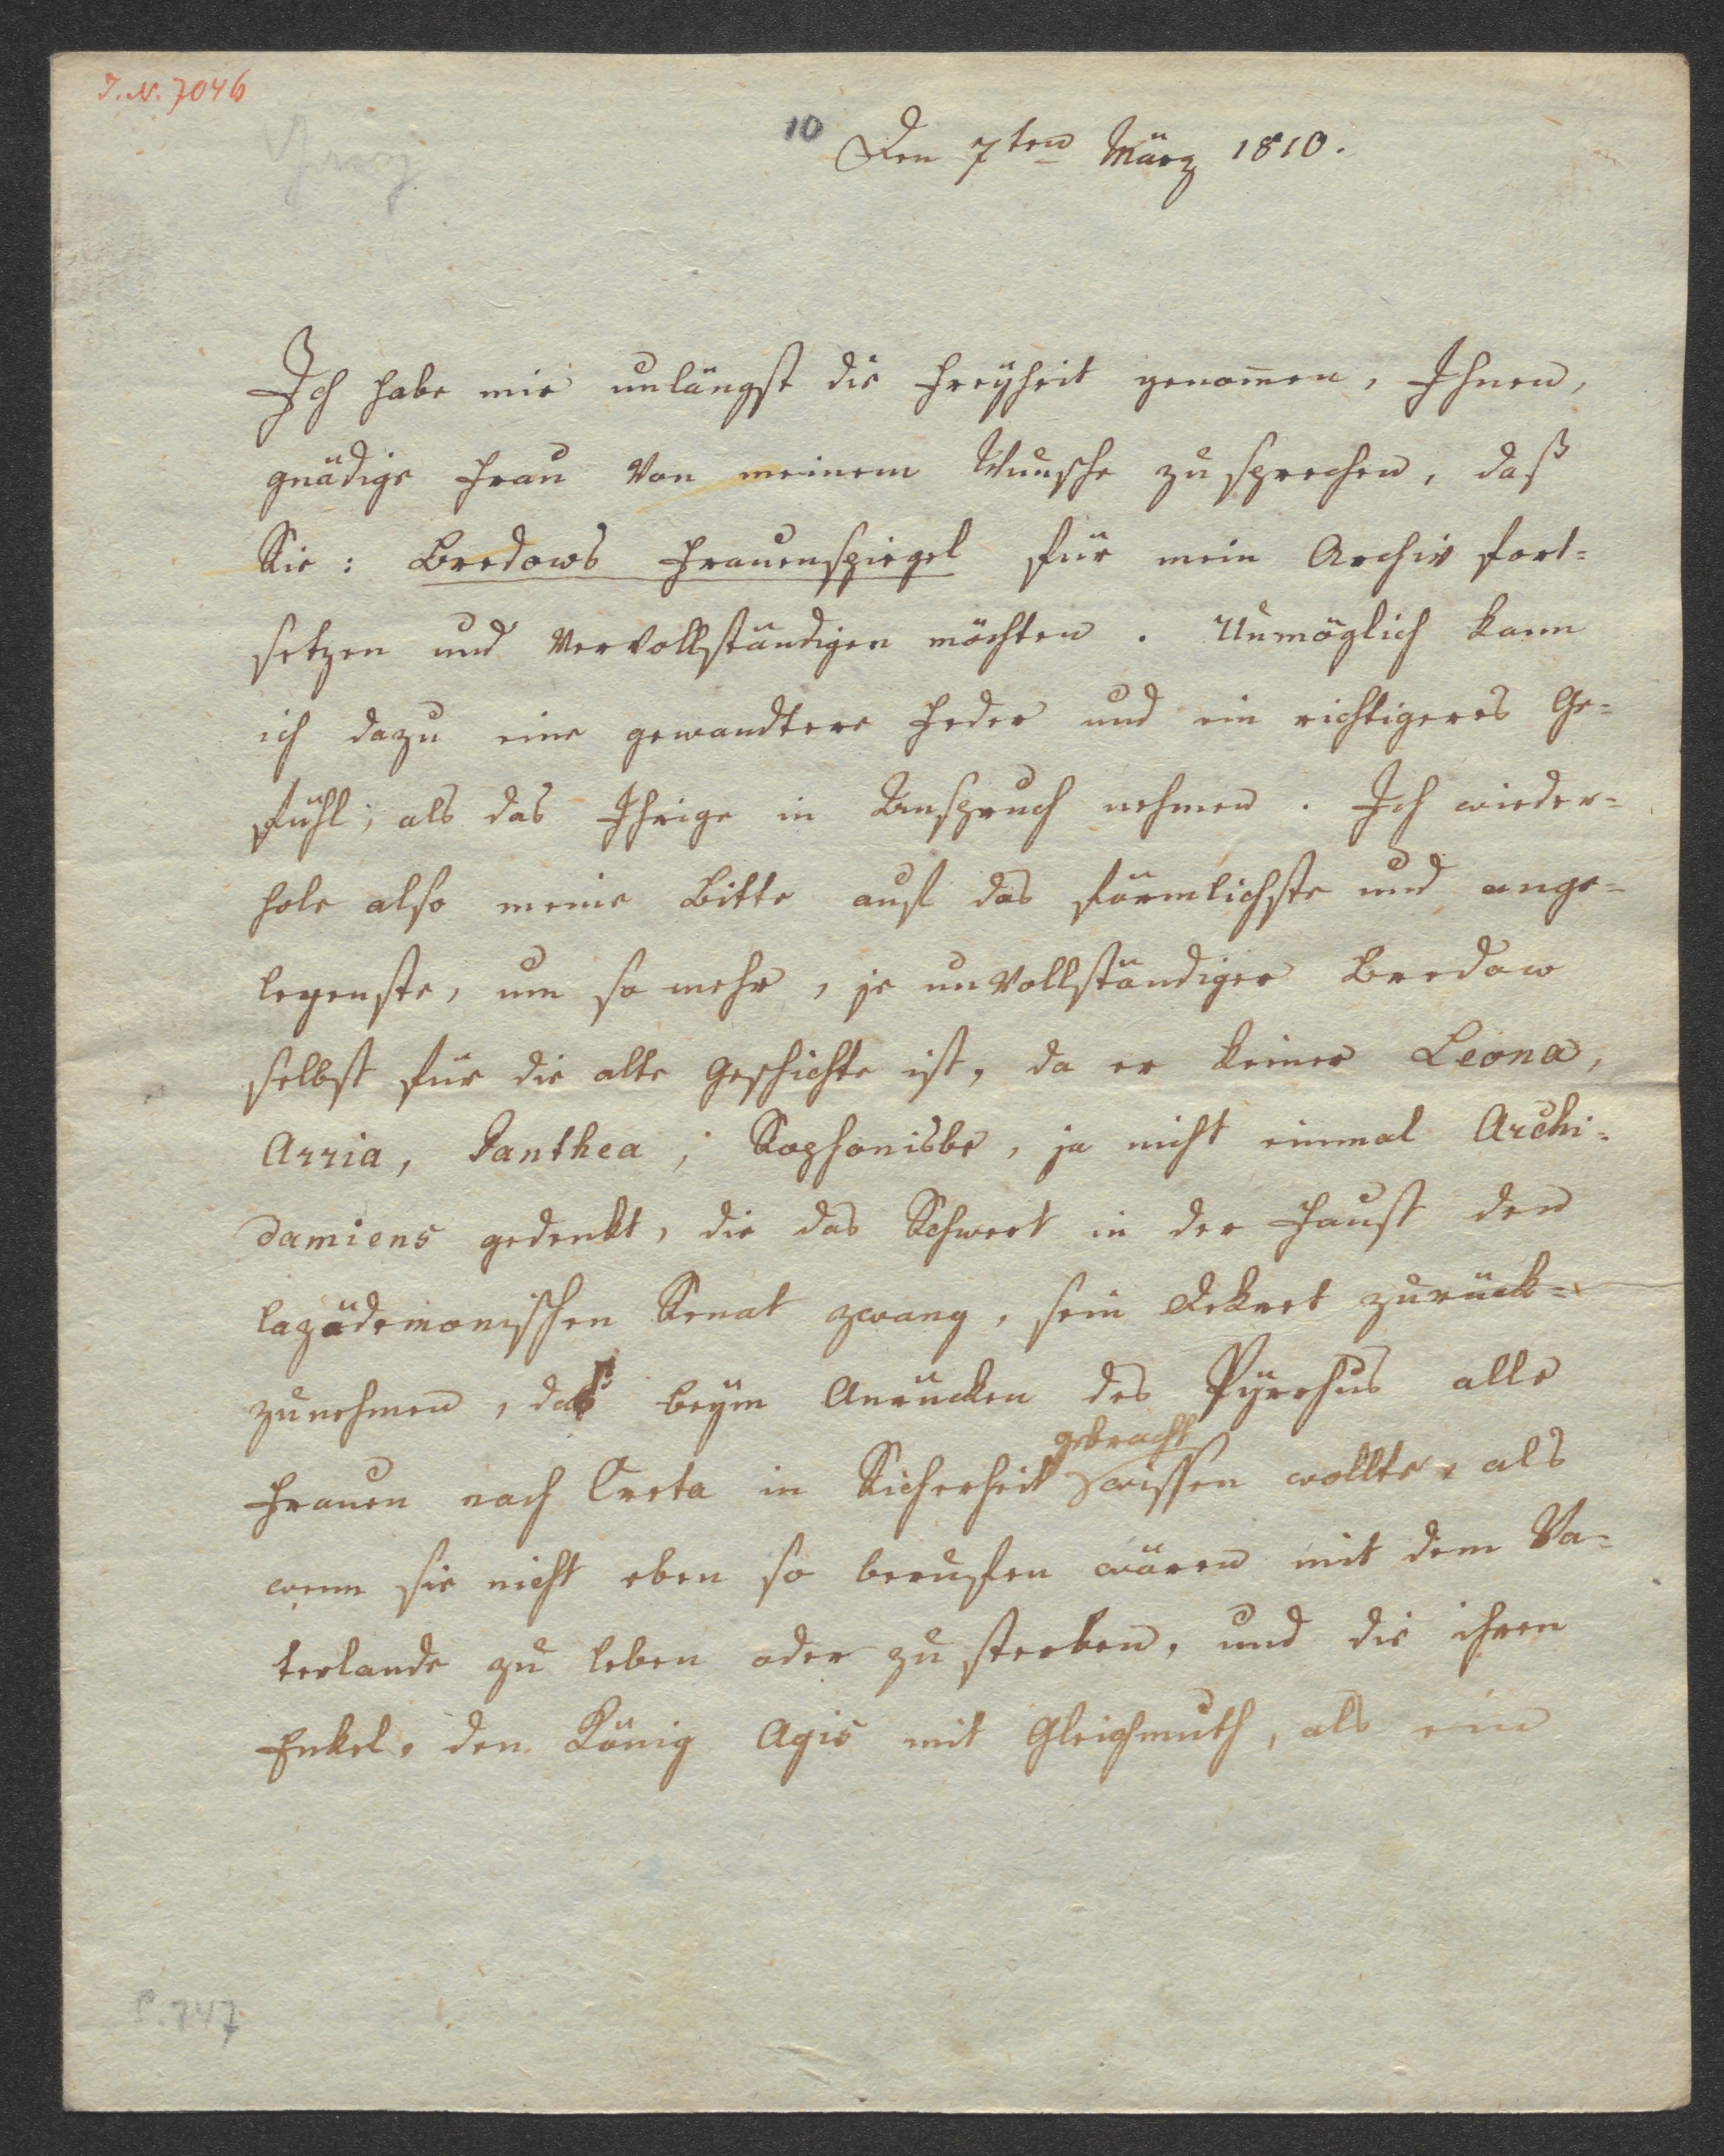 I. N. 7046
10 Den 7ten März 1810.
Ich habe mir unlängst die Freyheit genom̅en, Ihnen,
gnädige Frau von meinem Wunsche zu sprechen, daß
Sie: Bredows Frauenspiegel für mein Archiv fort=
setzen und vervollständigen möchten. Unmöglich kann
ich dazu eine gewandtere Feder und ein richtigeres Ge=
fühl, als das Ihrige in Anspruch nehmen. Ich wieder=
hole also meine Bitte auf das förmlichste und ange=
legenste, um so mehr, je unvollständiger Bredow
selbst für die alte Geschichte ist, da er keiner Leona,
Arria, Panthea, Sophonisbe, ja nicht einmal Archi=
damiens gedenkt, die das Schwert in der Faust den
lazädemonischen Senat zwang, sein Dekret zurück=
zunehmen, daß beym Anrücken des Pÿrrhus alle
gebracht
Frauen nach Creta in Sicherheit wissen wollte, als
wenn sie nicht eben so berufen wären mit dem Va=
terlande zu leben oder zu sterben, und die ihren
Enkel, den König Agis mit Gleichmuth, als ein
P. 247